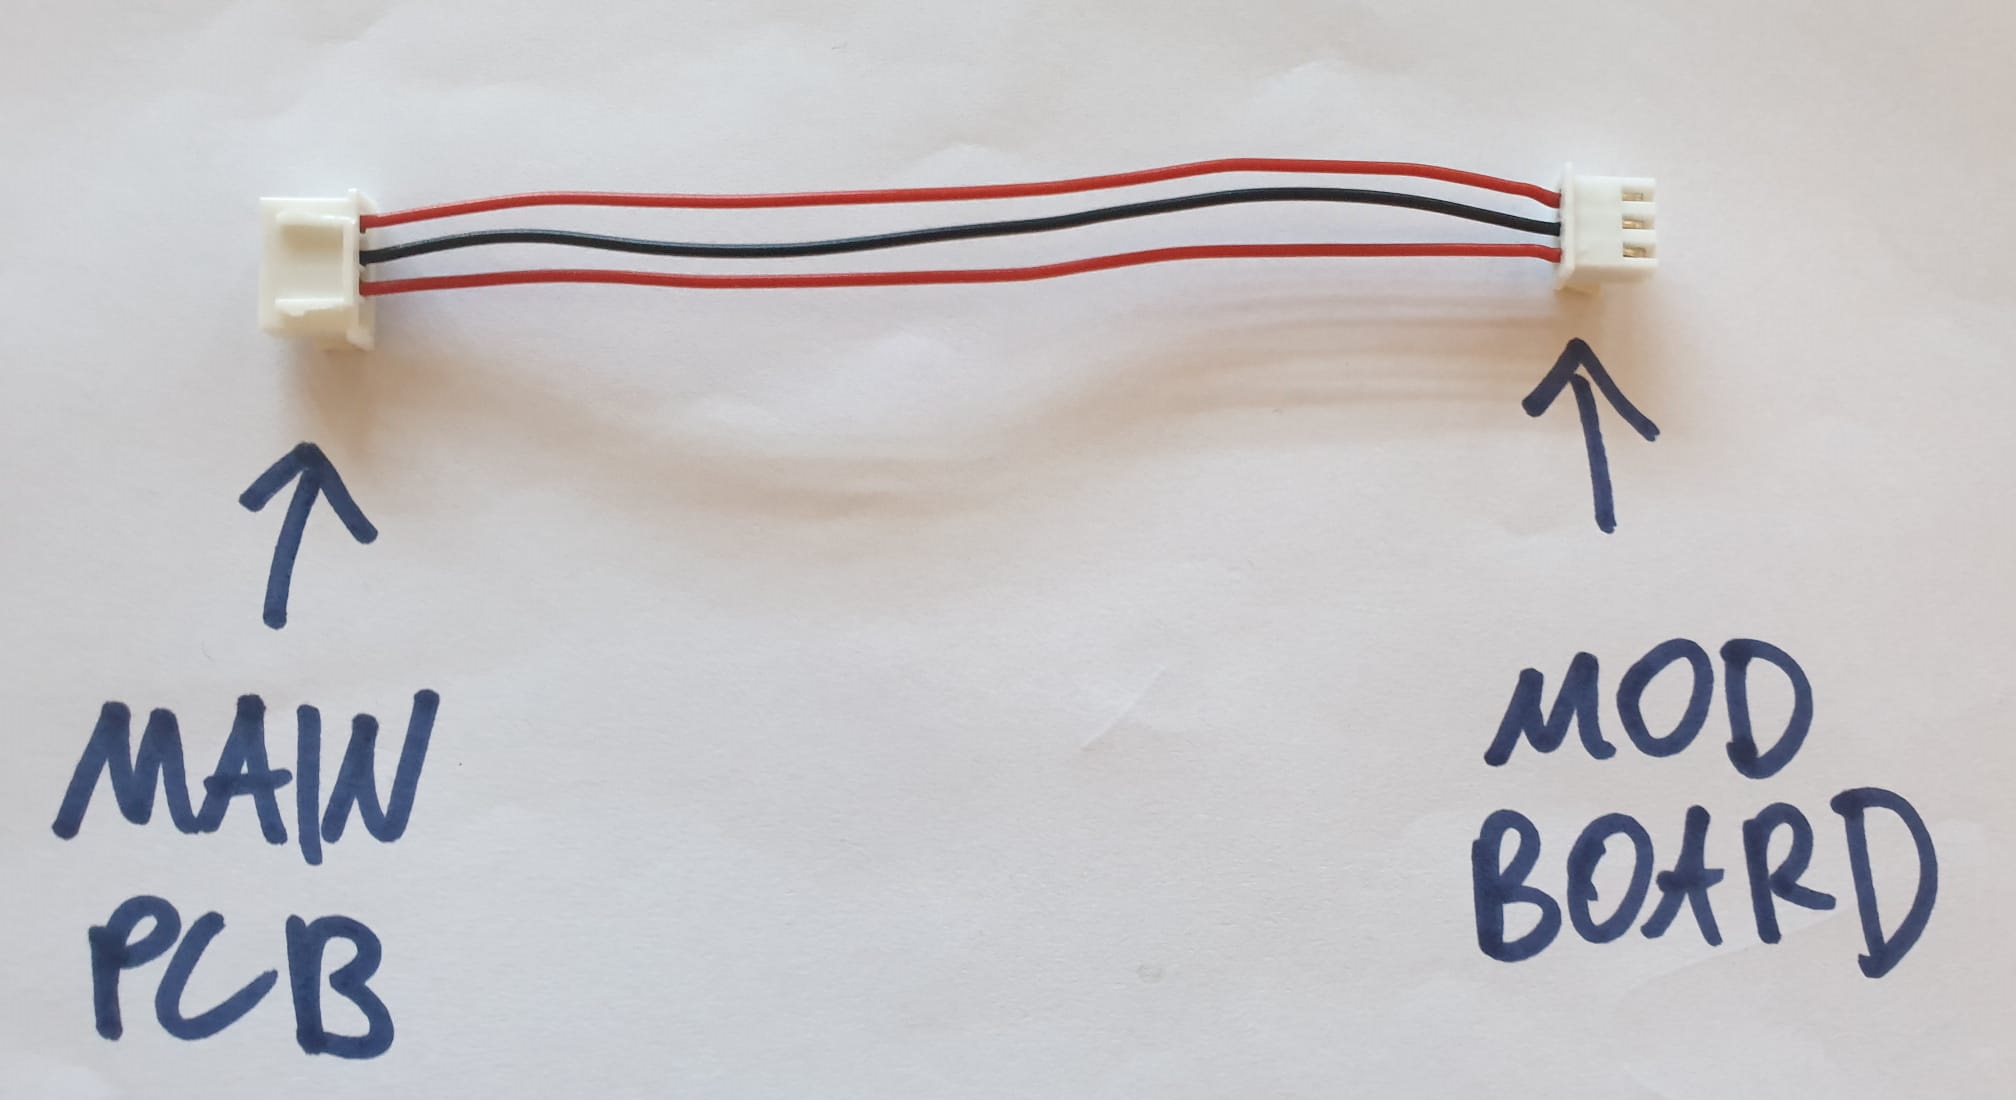 MAIN
PCB
MOD
BOARD